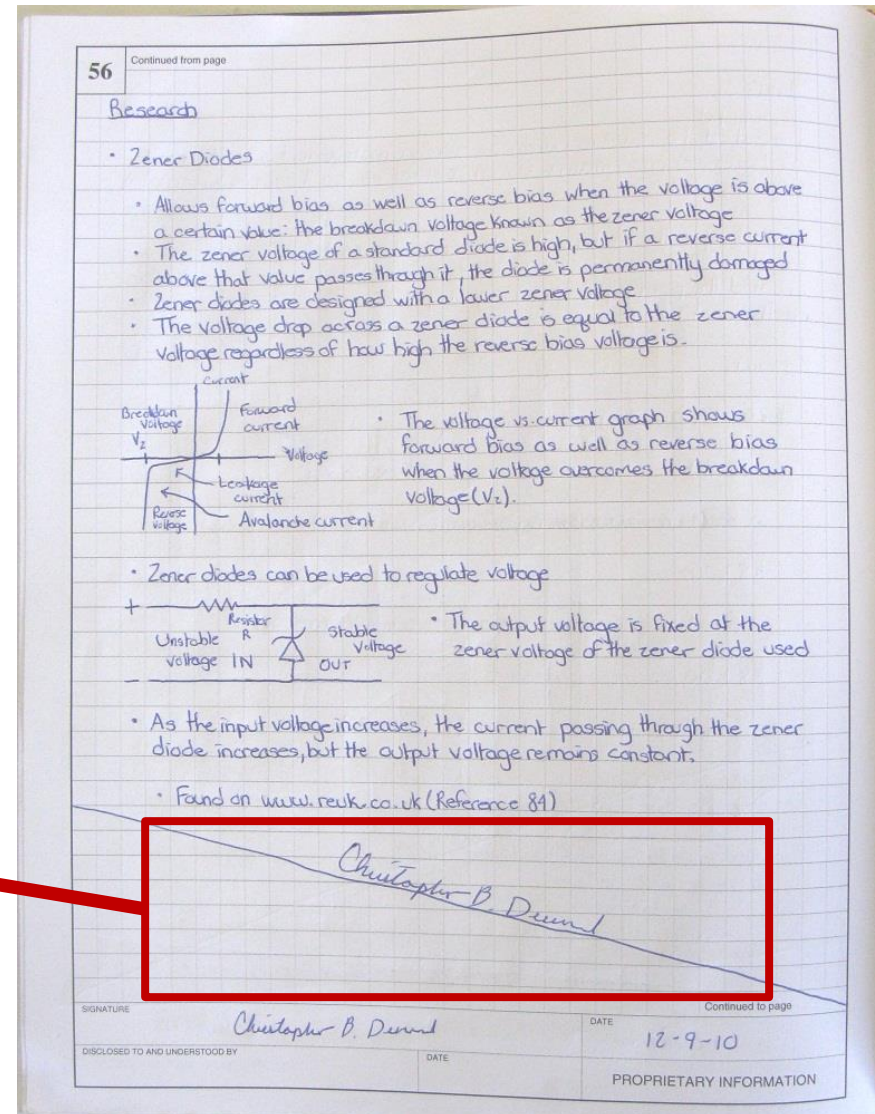 56
Continued from page
Research
• Zener Diodes
• Allows forward bias as well as reverse bias when the voltage is above
a certain value: the breakdown voltage known as the zener voltage
• The zener voltage of a standard diode is high, but if a reverse current
above that value passes through it, the diode is permanently damaged
• Zener diodes are designed with a lower zener voltage
• The voltage drop across a zener diode is equal to the zener
voltage regardless of how high the reverse bias voltage is.
Current
Breakdown
Voltage
Vz
Forward
current
Voltage
Leakage
current
Reverse
Voltage
Avalanche current
• The voltage vs. current graph shows
forward bias as well as reverse bias
when the voltage overcomes the breakdown
voltage (Vz).
• Zener diodes can be used to regulate voltage
+
Resistor
R
Unstable
voltage IN
Stable
Voltage
OUT
−
• The output voltage is fixed at the
zener voltage of the zener diode used
• As the input voltage increases, the current passing through the zener
diode increases, but the output voltage remains constant.
• Found on www.reuk.co.uk (Reference 84)
Christopher B.
Continued to page
SIGNATURE
Christopher B.
DATE
12-9-10
DISCLOSED TO AND UNDERSTOOD BY
DATE
PROPRIETARY INFORMATION